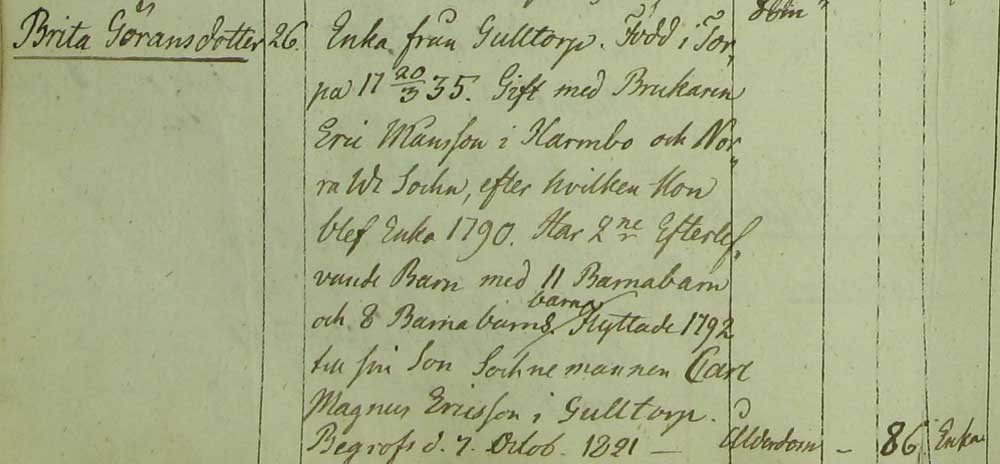 Brita Göransdotter 26. Enka från Gulltorp. Född i Tor„
pa 17 20/3 35. Gift med Brukaren
Eric Månsson i Harmbo och Nor„
ra Wi Sochn, efter hvilken Hon
blef Enka 1790. Har 2ne Efterlef„
vande Barn med 11 Barnabarn
och 8 Barnabarns barn. Flyttade 1792
till sin Son Sochnemannen Carl
Magnus Ericsson i Gulltorp.
Begrofs d. 7. Octob. 1821 — Ålderdom – 86 Enka